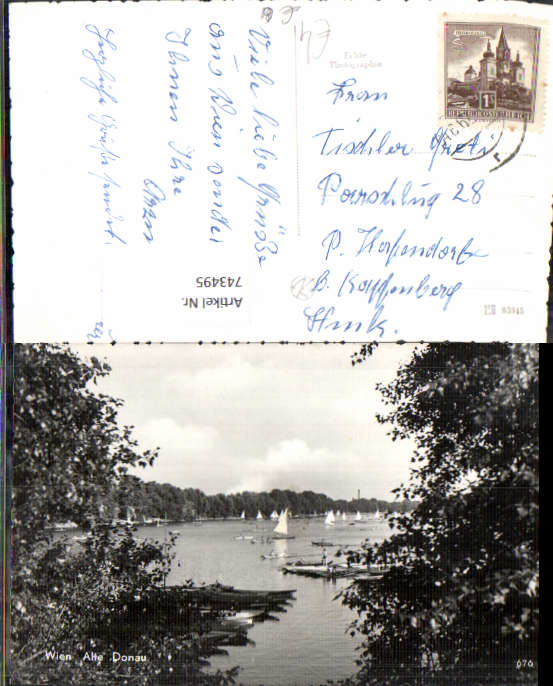 Viele liebe Grüße
aus Wien sendet
Ihnen Ihre
Herzliche Grüße sendet
Echte
Photographie
REPUBLIK ÖSTERREICH
1S
Frau
Tischler Greti
Parschlug 28
P. Hafendorf
b. Kapfenberg
Stmk.
Artikel Nr.
743495
Wien Alte Donau
676